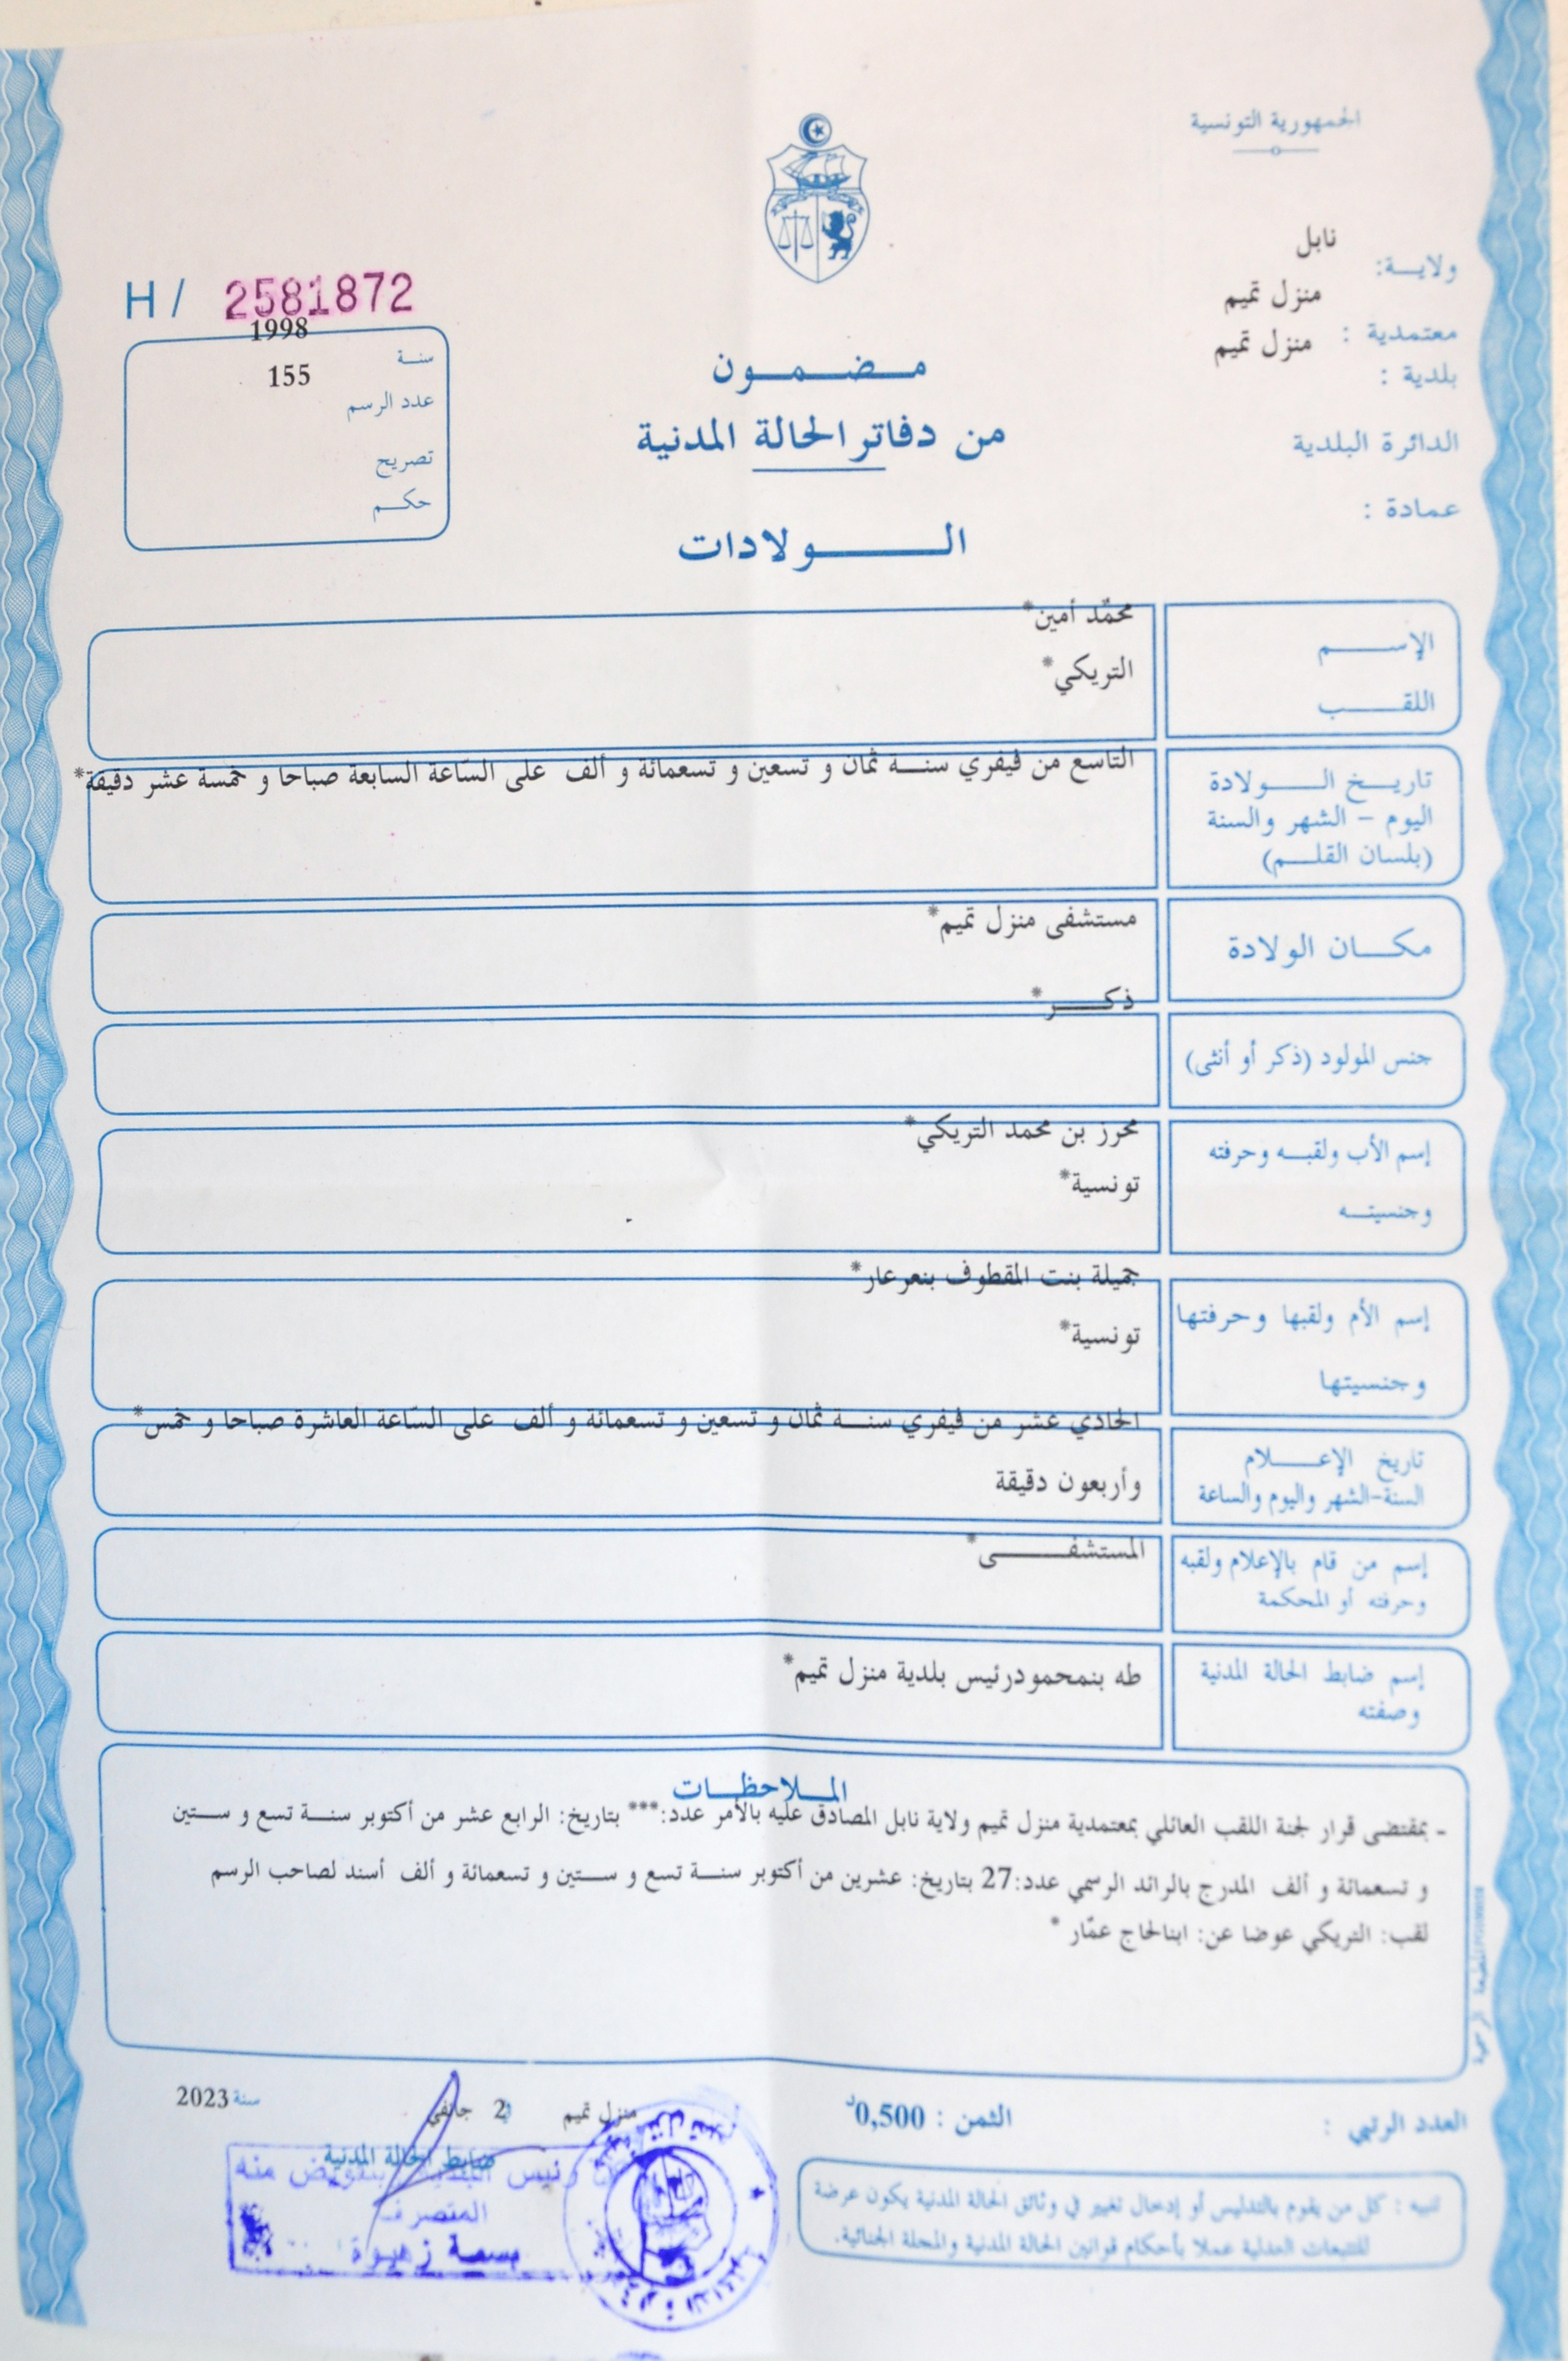 الجمهورية التونسية
ولايـــة: نابل
معتمدية : منزل تميم
بلدية : منزل تميم
الدائرة البلدية
عمادة :
H / 2581872
سنــة 1998
عدد الرسم 155
تصريح
حكــم
مــضــمــون
من دفاتر الحالة المدنية
الــــولادات
الإســـم محمّد أمين*
اللقـــب التريكي*
تاريـــخ الـــولادة التاسع من فيفري سنــة ثمان و تسعين و تسعمائة و ألف على السّاعة السابعة صباحا و خمسة عشر دقيقة*
اليوم - الشهر والسنة
(بلسان القلــم)
مكـــان الولادة مستشفى منزل تميم*
جنس المولود (ذكر أو أنثى) ذكـــر*
إسم الأب ولقبــه وحرفته محرز بن محمد التريكي*
وجنسيتــه تونسية*
إسم الأم ولقبها وحرفتها جميلة بنت المقطوف بنعرعار*
وجنسيتها تونسية*
تاريخ الإعـــلام الحادي عشر من فيفري سنــة ثمان و تسعين و تسعمائة و ألف على السّاعة العاشرة صباحا و خمس*
السنة-الشهر واليوم والساعة وأربعون دقيقة
إسم من قام بالإعلام ولقبه المستشفـــى*
وحرفته أو المحكمة
إسم ضابط الحالة المدنية طه بنمحمودرئيس بلدية منزل تميم*
وصفته
المـــلاحظـــات
- بمقتضى قرار لجنة اللقب العائلي بمعتمدية منزل تميم ولاية نابل المصادق عليه بالأمر عدد:*** بتاريخ: الرابع عشر من أكتوبر سنــة تسع و ســتين
و تسعمائة و ألف المدرج بالرائد الرسمي عدد:27 بتاريخ: عشرين من أكتوبر سنــة تسع و ســتين و تسعمائة و ألف أسند لصاحب الرسم
لقب: التريكي عوضا عن: ابنالحاج عمّار *
العدد الرتبي :
الثمن : 0,500د
منزل تميم 2 جانفي سنة 2023
ضابط الحالة المدنية
رئيس البلدية بتفويض منه
المتصرف
بسمة زهيوة
تنبيه : كل من يقوم بالتدليس أو إدخال تغيير في وثائق الحالة المدنية يكون عرضة
للتتبعات العدلية عملا بأحكام قوانين الحالة المدنية والمجلة الجنائية.